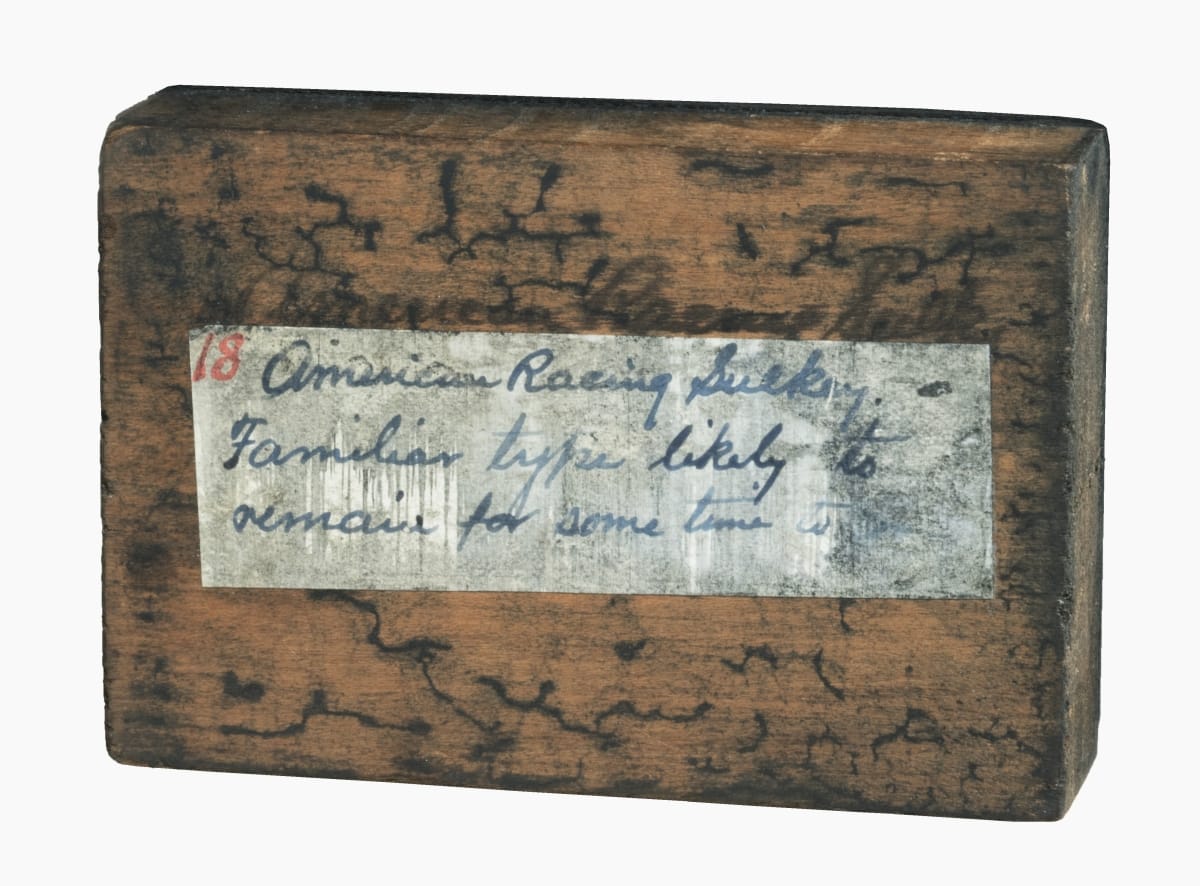 American
18 American Racing Sulkey.
Familiar type likely to
remain for some time to